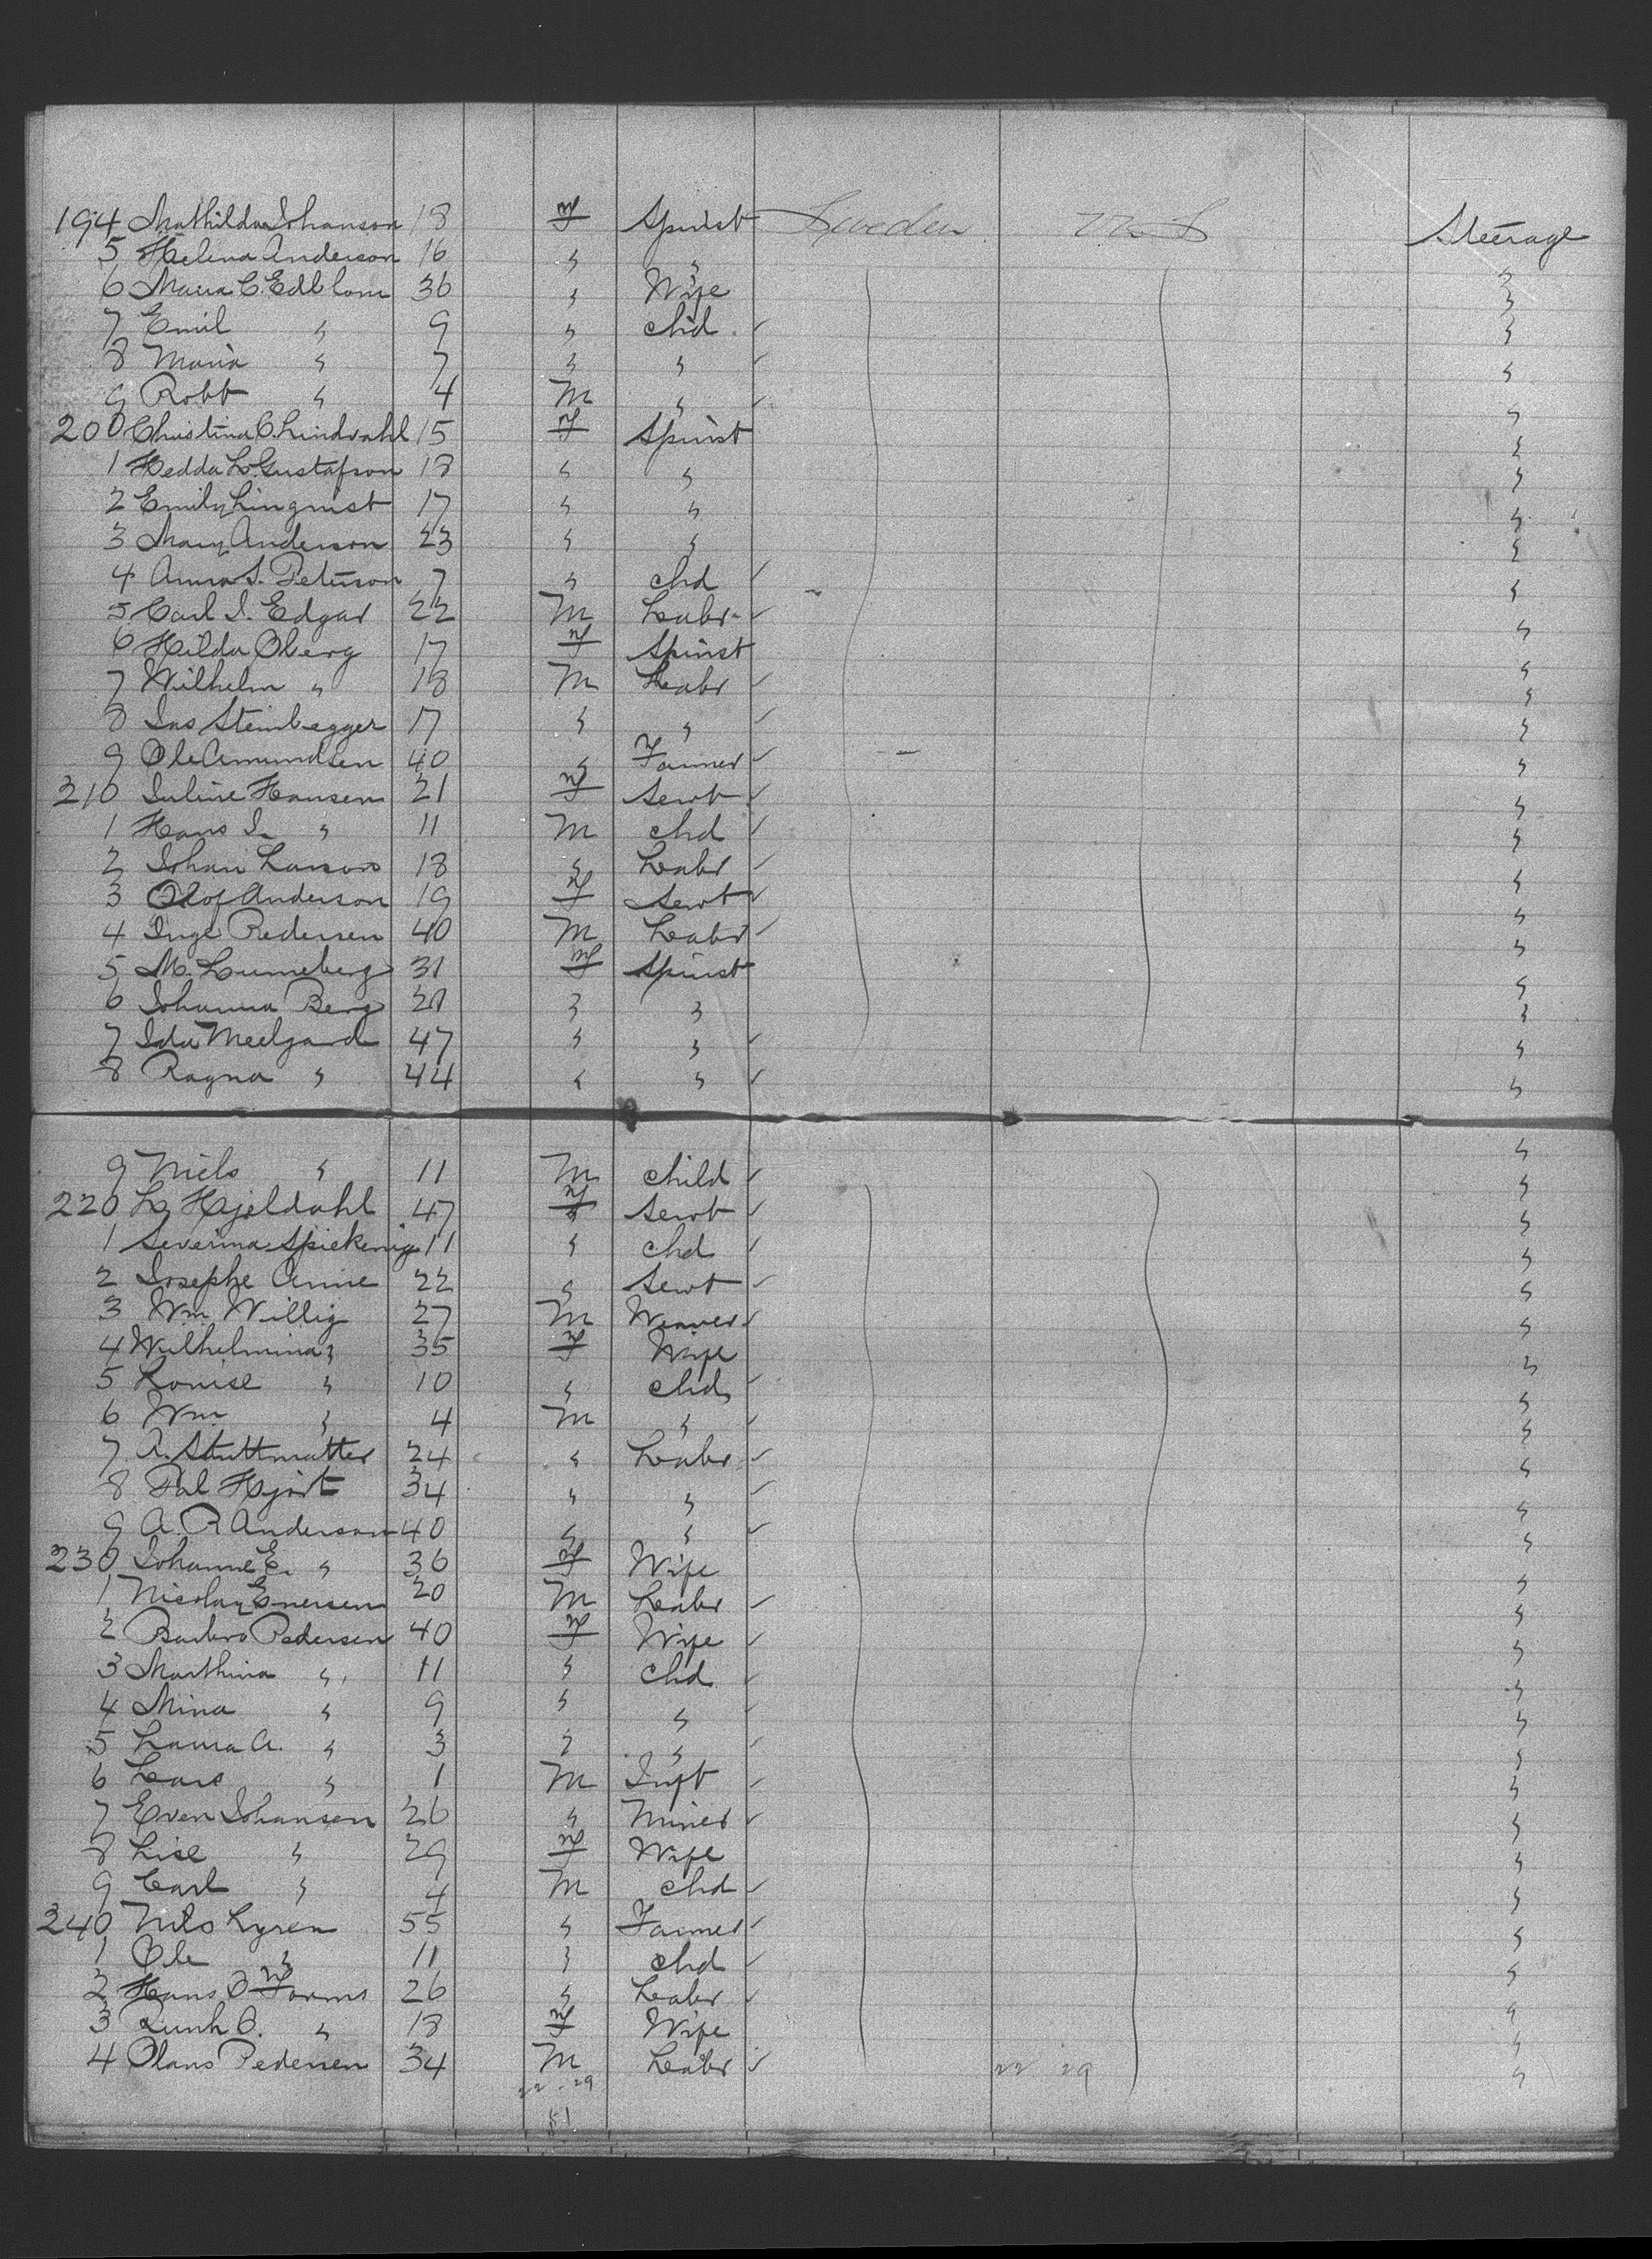 194 Mathilda Johanson 18 F Spinst Sweden U S Steerage
5 Helena Anderson 16 " " "
6 Maria C. Edblom 36 " Wife "
7 Emil " 9 " chd "
8 Maria " 7 " " "
9 Robt " 4 M " "
200 Christina C. Lindvahl 15 F Spinst "
1 Hedda L. Gustafson 18 " " "
2 Emily Linquist 17 " " "
3 Mary Anderson 23 " " "
4 Anna S. Peterson 7 " chd "
5 Carl J. Edgar 22 M Labr "
6 Hilda Oberg 17 F Spinst "
7 Wilhelm " 18 M Labr "
8 Jas Steinbegger 17 " " "
9 Ole Amundsen 40 " Farmer "
210 Juline Hansen 21 F Servt "
1 Hans J. " 11 M chd "
2 Johan Larson 18 " Labr "
3 Olof Anderson 19 F Servt "
4 Inge Pedersen 40 M Labr "
5 M. Lunneberg 31 F Spinst "
6 Johanna Berg 21 " " "
7 Ida Meelgard 47 " " "
8 Ragna " 44 " " "
9 Niels " 11 M child "
220 L. Hjeldahl 47 F Servt "
1 Severina Spiekenig 11 " chd "
2 Josephe Anne 22 " Servt "
3 Wm Willig 27 M Weaver "
4 Wilhelmina " 35 F Wife "
5 Louise " 10 " chd "
6 Wm " 4 M " "
7 A. Stuttmatter 24 " Labr "
8 Pal Hjort 34 " " "
9 A. P. Anderson 40 " " "
230 Johanne E. " 36 F Wife "
1 Nicolay Enersen 20 M Labr "
2 Barbro Pedersen 40 F Wife "
3 Marthina " 11 " chd "
4 Mina " 9 " " "
5 Laura A. " 3 " " "
6 Lars " 1 M Inft "
7 Even Johansen 26 " Miner "
8 Lise " 29 F Wife "
9 Carl " 4 M chd "
240 Nils Lyren 55 " Farmer "
1 Ole " 11 " chd "
2 Hans O Forms 26 " Labr "
3 O. " 18 F Wife "
4 Olans Pedersen 34 M Labr "
22 - 29 22 29
51